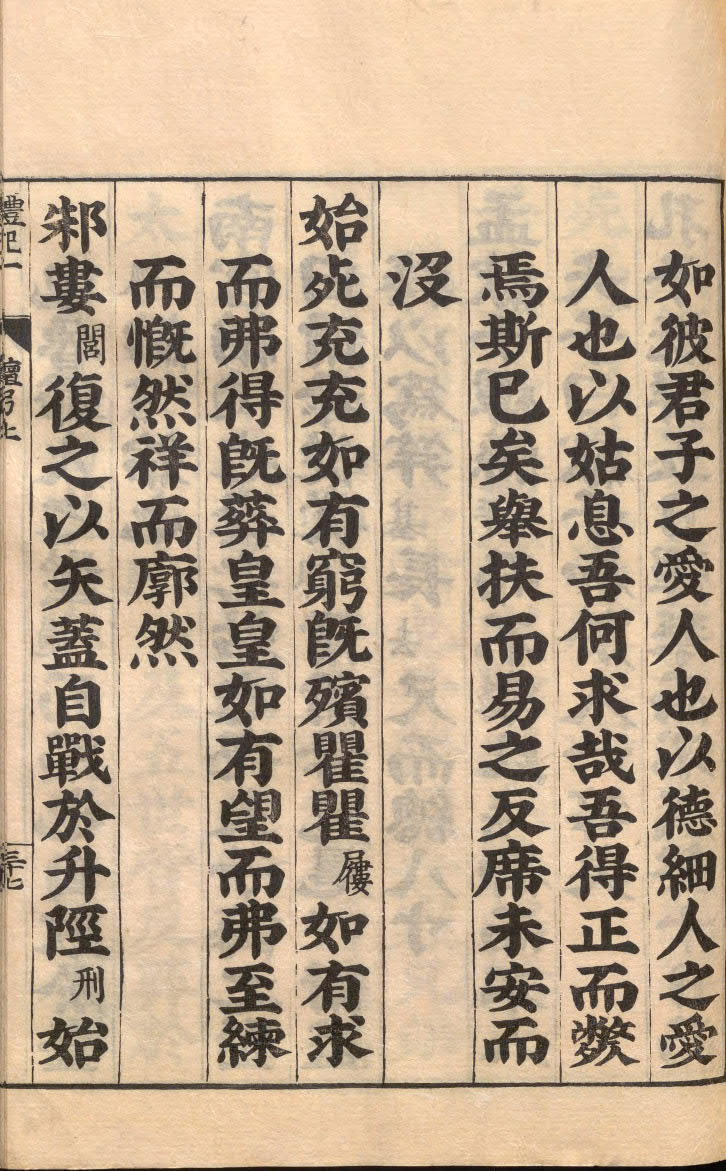 如彼君子之愛人也以德細人之愛
人也以姑息吾何求哉吾得正而斃
焉斯已矣舉扶而易之反席未安而
沒
始死充充如有窮旣殯瞿瞿屨如有求
而弗得旣葬皇皇如有望而弗至練
而慨然祥而廓然
邾婁閭復之以矢蓋自戰於升陘刑始
禮記一 檀弓上 三十七